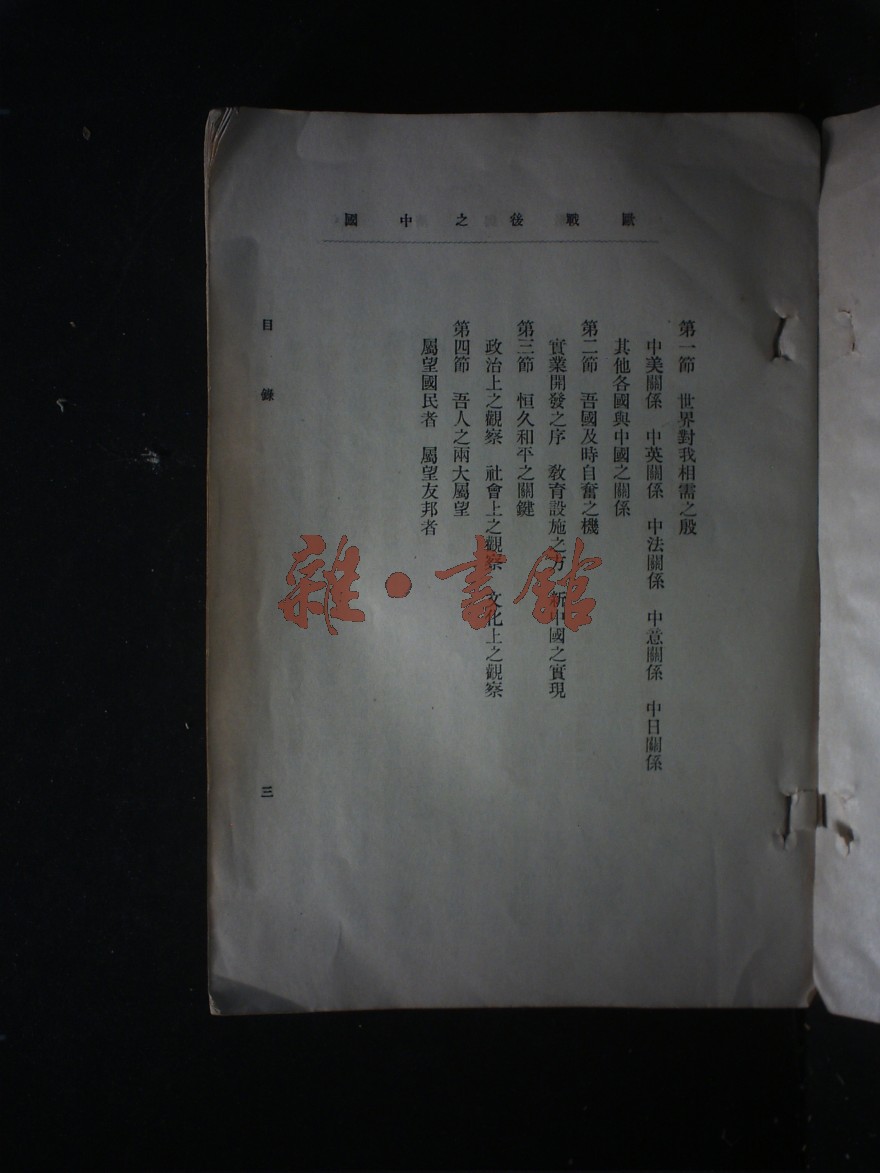 歐戰後之中國
第一節　世界對我相需之殷
中美關係　中英關係　中法關係　中意關係　中日關係
其他各國與中國之關係
第二節　吾國及時自奮之機
實業開發之序　教育設施之方　新中國之實現
第三節　恒久和平之關鍵
政治上之觀察　社會上之觀察　文化上之觀察
第四節　吾人之兩大屬望
屬望國民者　屬望友邦者
目錄
三
雜·書館